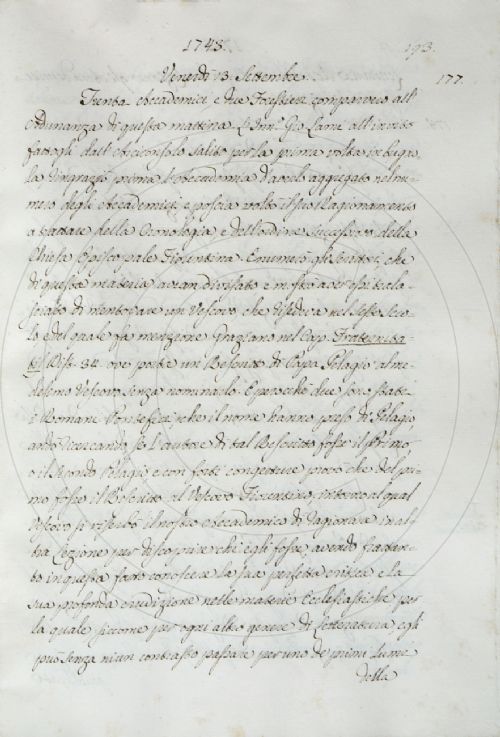 1748.
193.
Venerdì 13. Settembre
177.
Trenta Accademici e due Forestieri comparvero all'
Adunanza di questa mattina. Gio. Lami all'invito
fattogli dall'Arciconsolo salito per la prima volta in bugno,
la ringraziò prima l'Accademia d'averlo aggregato nel nu-
mero degli Accademici, e poscia voltò il suo Ragionamento
a trattare della Cronologia e dell'ordine successivo della
Chiesa Episcopale Fiorentina. Enumerò gli Scrittori, che
di questa materia aveano divisato e mostrò essersi tra la-
sciato di rammentare un Vescovo che risedeva nel sesto seco-
lo, del quale fa menzione Graziano nel Cap. Fraternita-
tis Dist. 34. ove porta un Rescritto di Papa Pelagio al me-
desimo Vescovo senza nominarlo. E perocché due sono stati
i Romani Pontefici, che il nome hanno preso di Pelagio
andò ricercando, se l'autore di tal Rescritto fosse il Primo
o il Secondo Pelagio e con forti conjetture provò che del pri-
mo fosse il Rescritto al Vescovo Fiorentino, intorno al qual
Vescovo si riserbò il nostro Accademico di ragionare in al-
tra Lezione per discoprire chi egli fosse, avendo frattan-
to in questa fatto conoscere la sua perfetta critica e la
sua profonda erudizione nelle materie Ecclesiastiche per
la quale siccome per ogni altro genere di Letteratura egli
può senza niun contrasto passare per uno de' primi Lumi
della